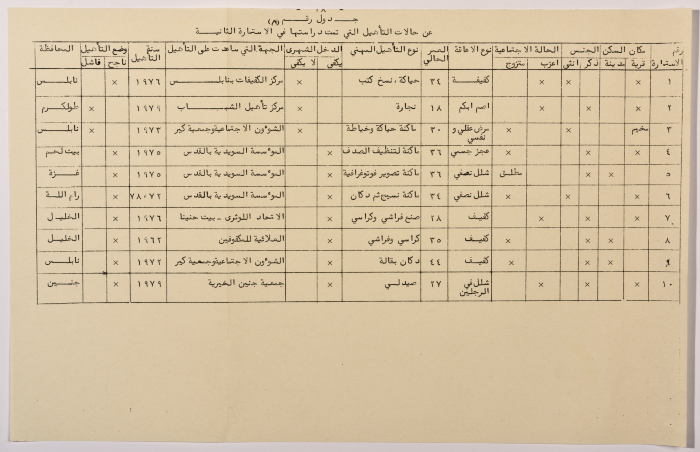 - ٨ -
جدول رقم (٨)
عن حالات التأهيل التي تمت دراستها في الاستمارة الثانية
رقم الاستمارة | مكان السكن: قرية | مدينة | الجنس: ذكر | انثى | الحالة الاجتماعية: اعزب | متزوج | نوع الاعاقة | العمر الحالي | نوع التأهيل المهني | الدخل الشهري: يكفي | لا يكفي | الجهة التي ساعدت على التأهيل | سنة التأهيل | وضع التأهيل: ناجح | فاشل | المحافظة
١ | × | | | × | × | | كفيفة | ٣٤ | حياكة، نسخ كتب | | × | مركز الكفيفات بنابلس | ١٩٧٦ | × | | نابلس
٢ | × | | × | | × | | اصم ابكم | ١٨ | نجارة | | × | مركز تأهيل الشباب | ١٩٧٩ | | × | طولكرم
٣ | مخيم | | | × | | × | مرض عقلي و نفسي | ٣٠ | ماكنة حياكة وخياطة | | × | الشؤون الاجتماعية وجمعية كير | ١٩٧٣ | | × | نابلس
٤ | × | | × | | | × | عجز جسمي | ٣٦ | ماكنة لتنظيف الصدف | × | | المؤسسة السويدية بالقدس | ١٩٧٥ | × | | بيت لحم
٥ | | × | × | | | مطلق | شلل نصفي | ٣٦ | ماكنة تصوير فوتوغرافية | × | | المؤسسة السويدية بالقدس | ١٩٧٥ | × | | غزة
٦ | × | | | × | | × | شلل نصفي | ٣٤ | ماكنة نسيج ثم دكان | × | | المؤسسة السويدية بالقدس | ٧٨،٧٢ | × | | رام الله
٧ | × | | × | | × | | كفيف | ٢٨ | صنع فراشي وكراسي | × | | الاتحاد اللوثري - بيت حنينا | ١٩٧٦ | × | | الخليل
٨ | | × | × | | | × | كفيف | ٣٥ | كراسي وفراشي | × | | العلائية للمكفوفين | ١٩٦٢ | × | | الخليل
٩ | | × | × | | | × | كفيف | ٤٤ | دكان بقالة | × | | الشؤون الاجتماعية وجمعية كير | ١٩٧٢ | × | | نابلس
١٠ | × | | × | | × | | شلل في الرجلين | ٢٧ | صيدلي | × | | جمعية جنين الخيرية | ١٩٧٩ | × | | جنين